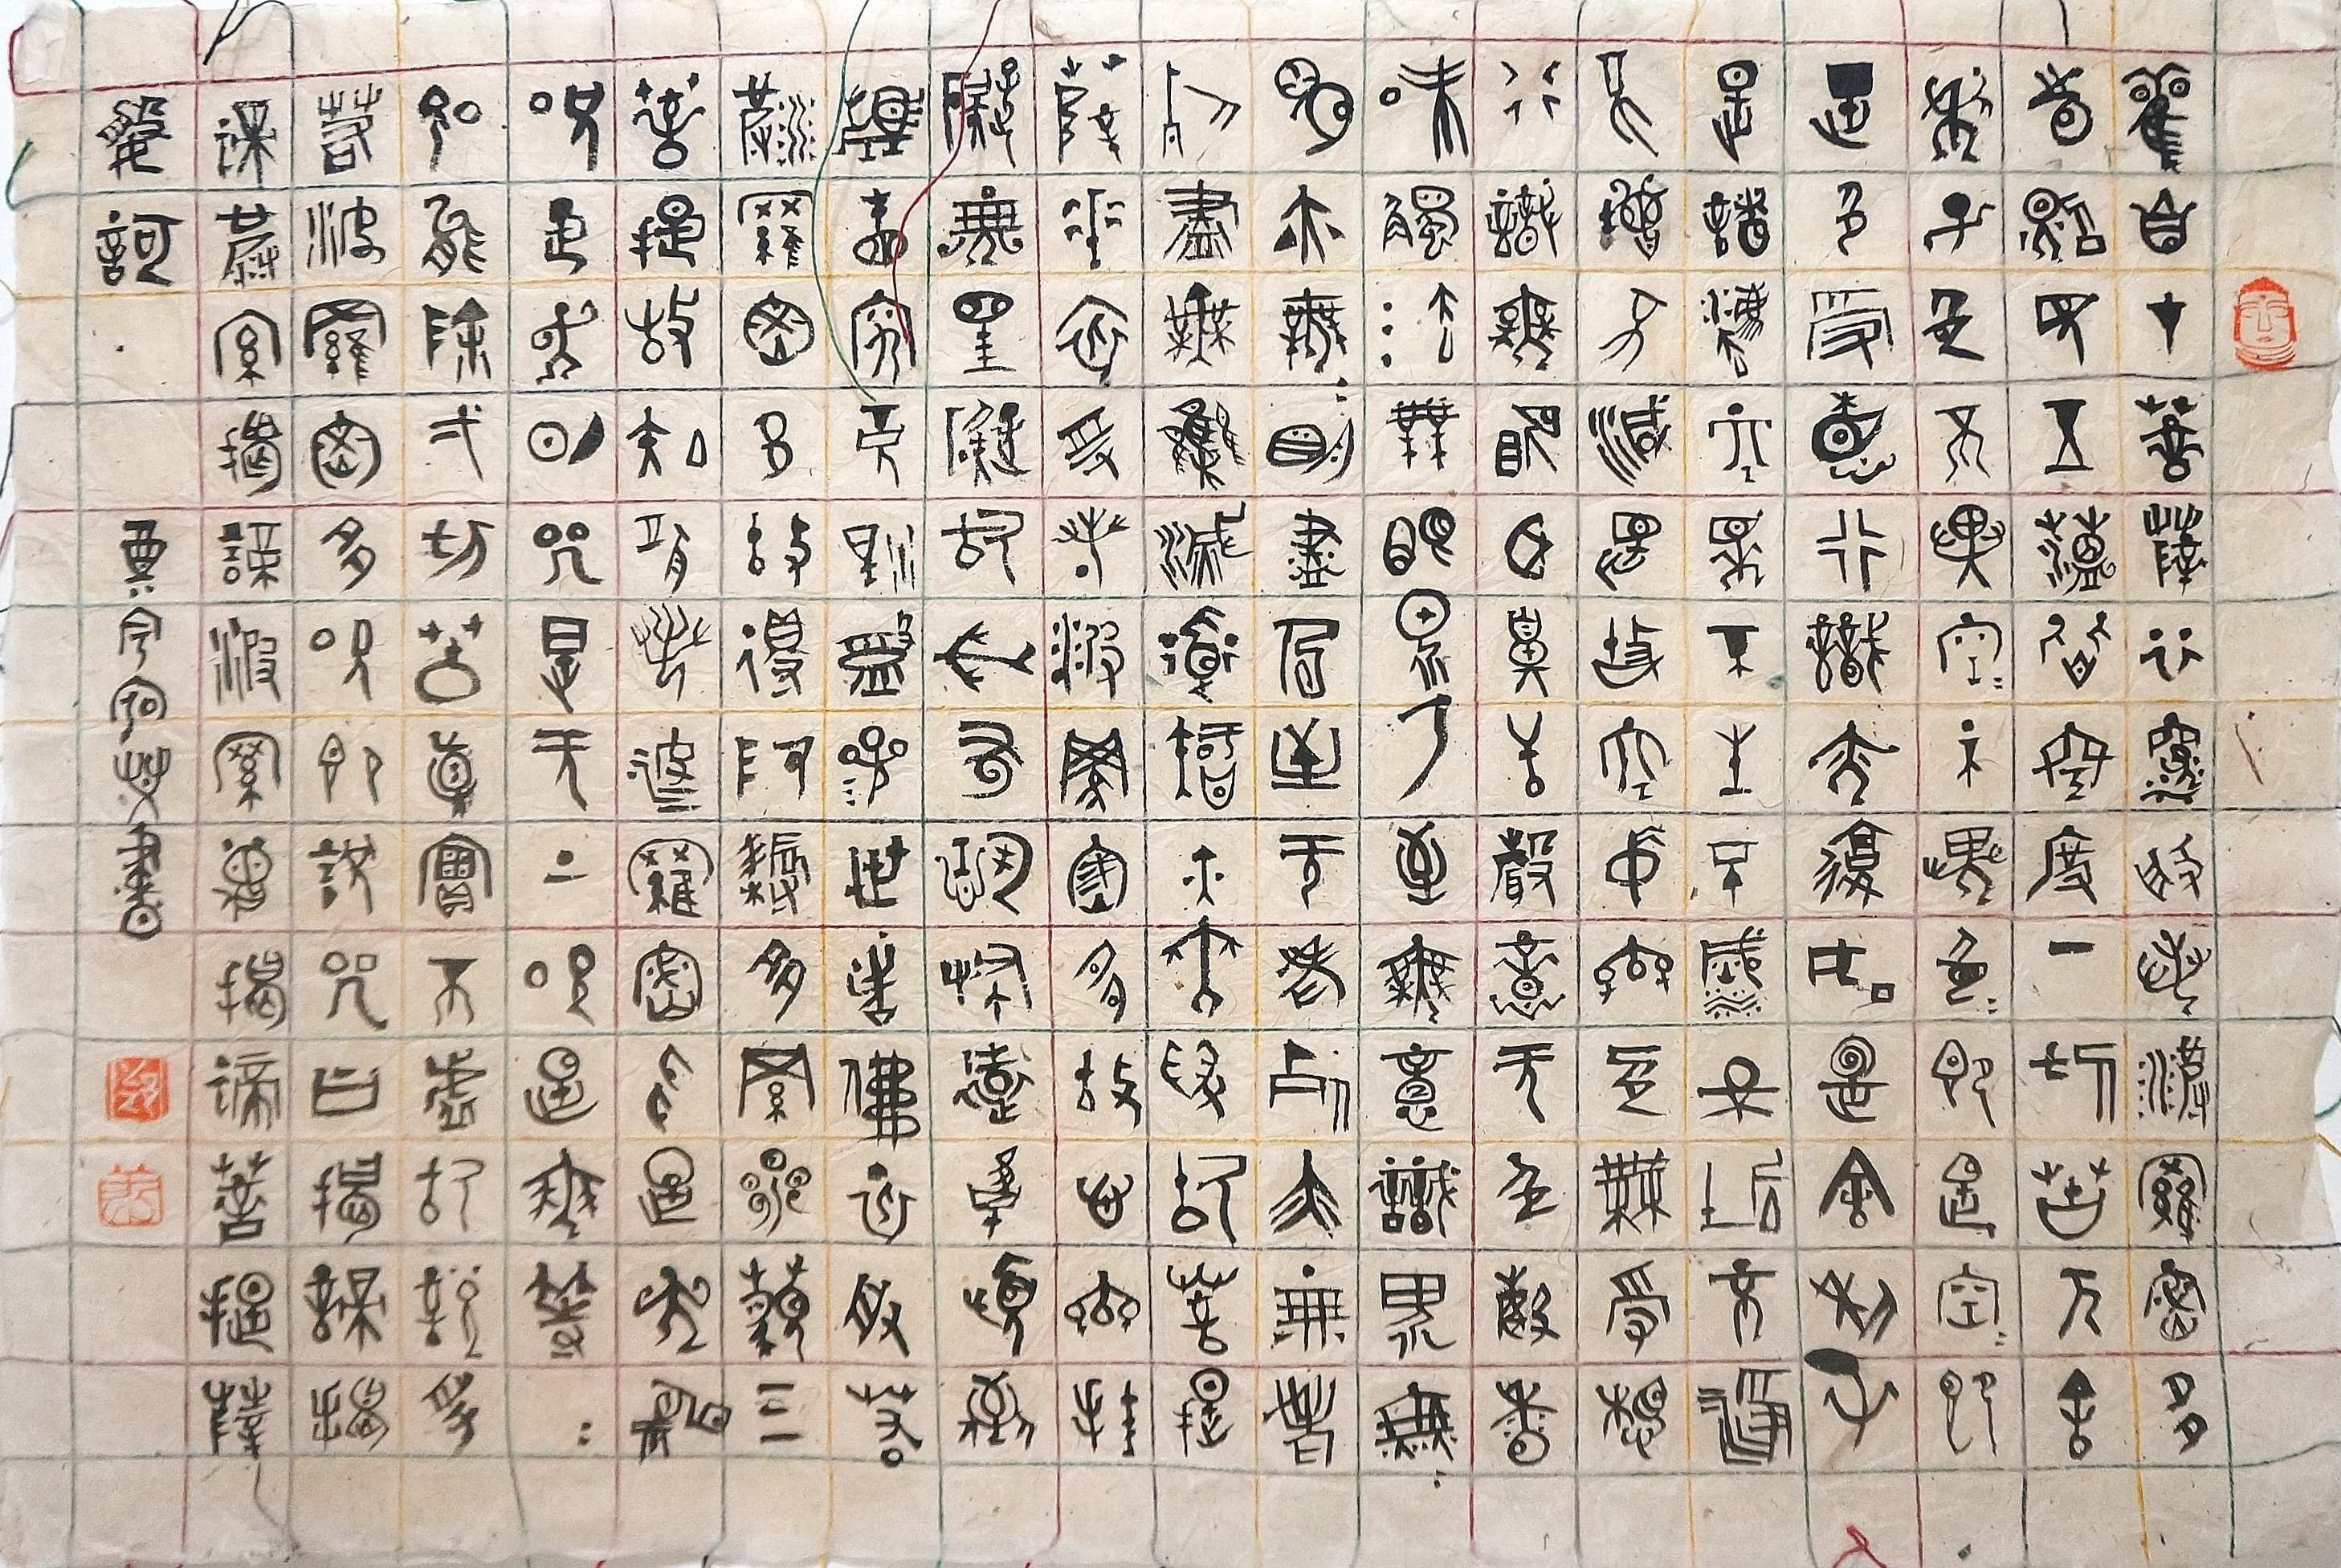 觀自在菩薩行深般若波羅蜜多
時照見五蘊皆空度一切苦厄舍
利子色不異空=不異色=即是空=即
是色受想行識亦復如是舍利子
是諸法空相不生不滅不垢不淨
不增不減是故空中無色無受想
行識無眼耳鼻舌身意无色聲香
味觸法無眼界乃至無意識界無=
明亦無=明盡乃至无老死亦無老
死盡無集滅道智亦無得故菩提
薩埵依般若波羅蜜多故心無罣
礙無罣礙故無有恐怖遠離顛倒
夢想究竟涅槃三世諸佛依般若
波羅蜜多故得阿耨多羅三藐三
菩提故知般若波羅蜜多是大神
咒是大明咒是无上咒是無等=
咒能除一切苦真實不虛故說般
若波羅蜜多咒即說咒曰揭諦揭
諦波羅揭諦波羅僧揭諦菩提薩
婆訶